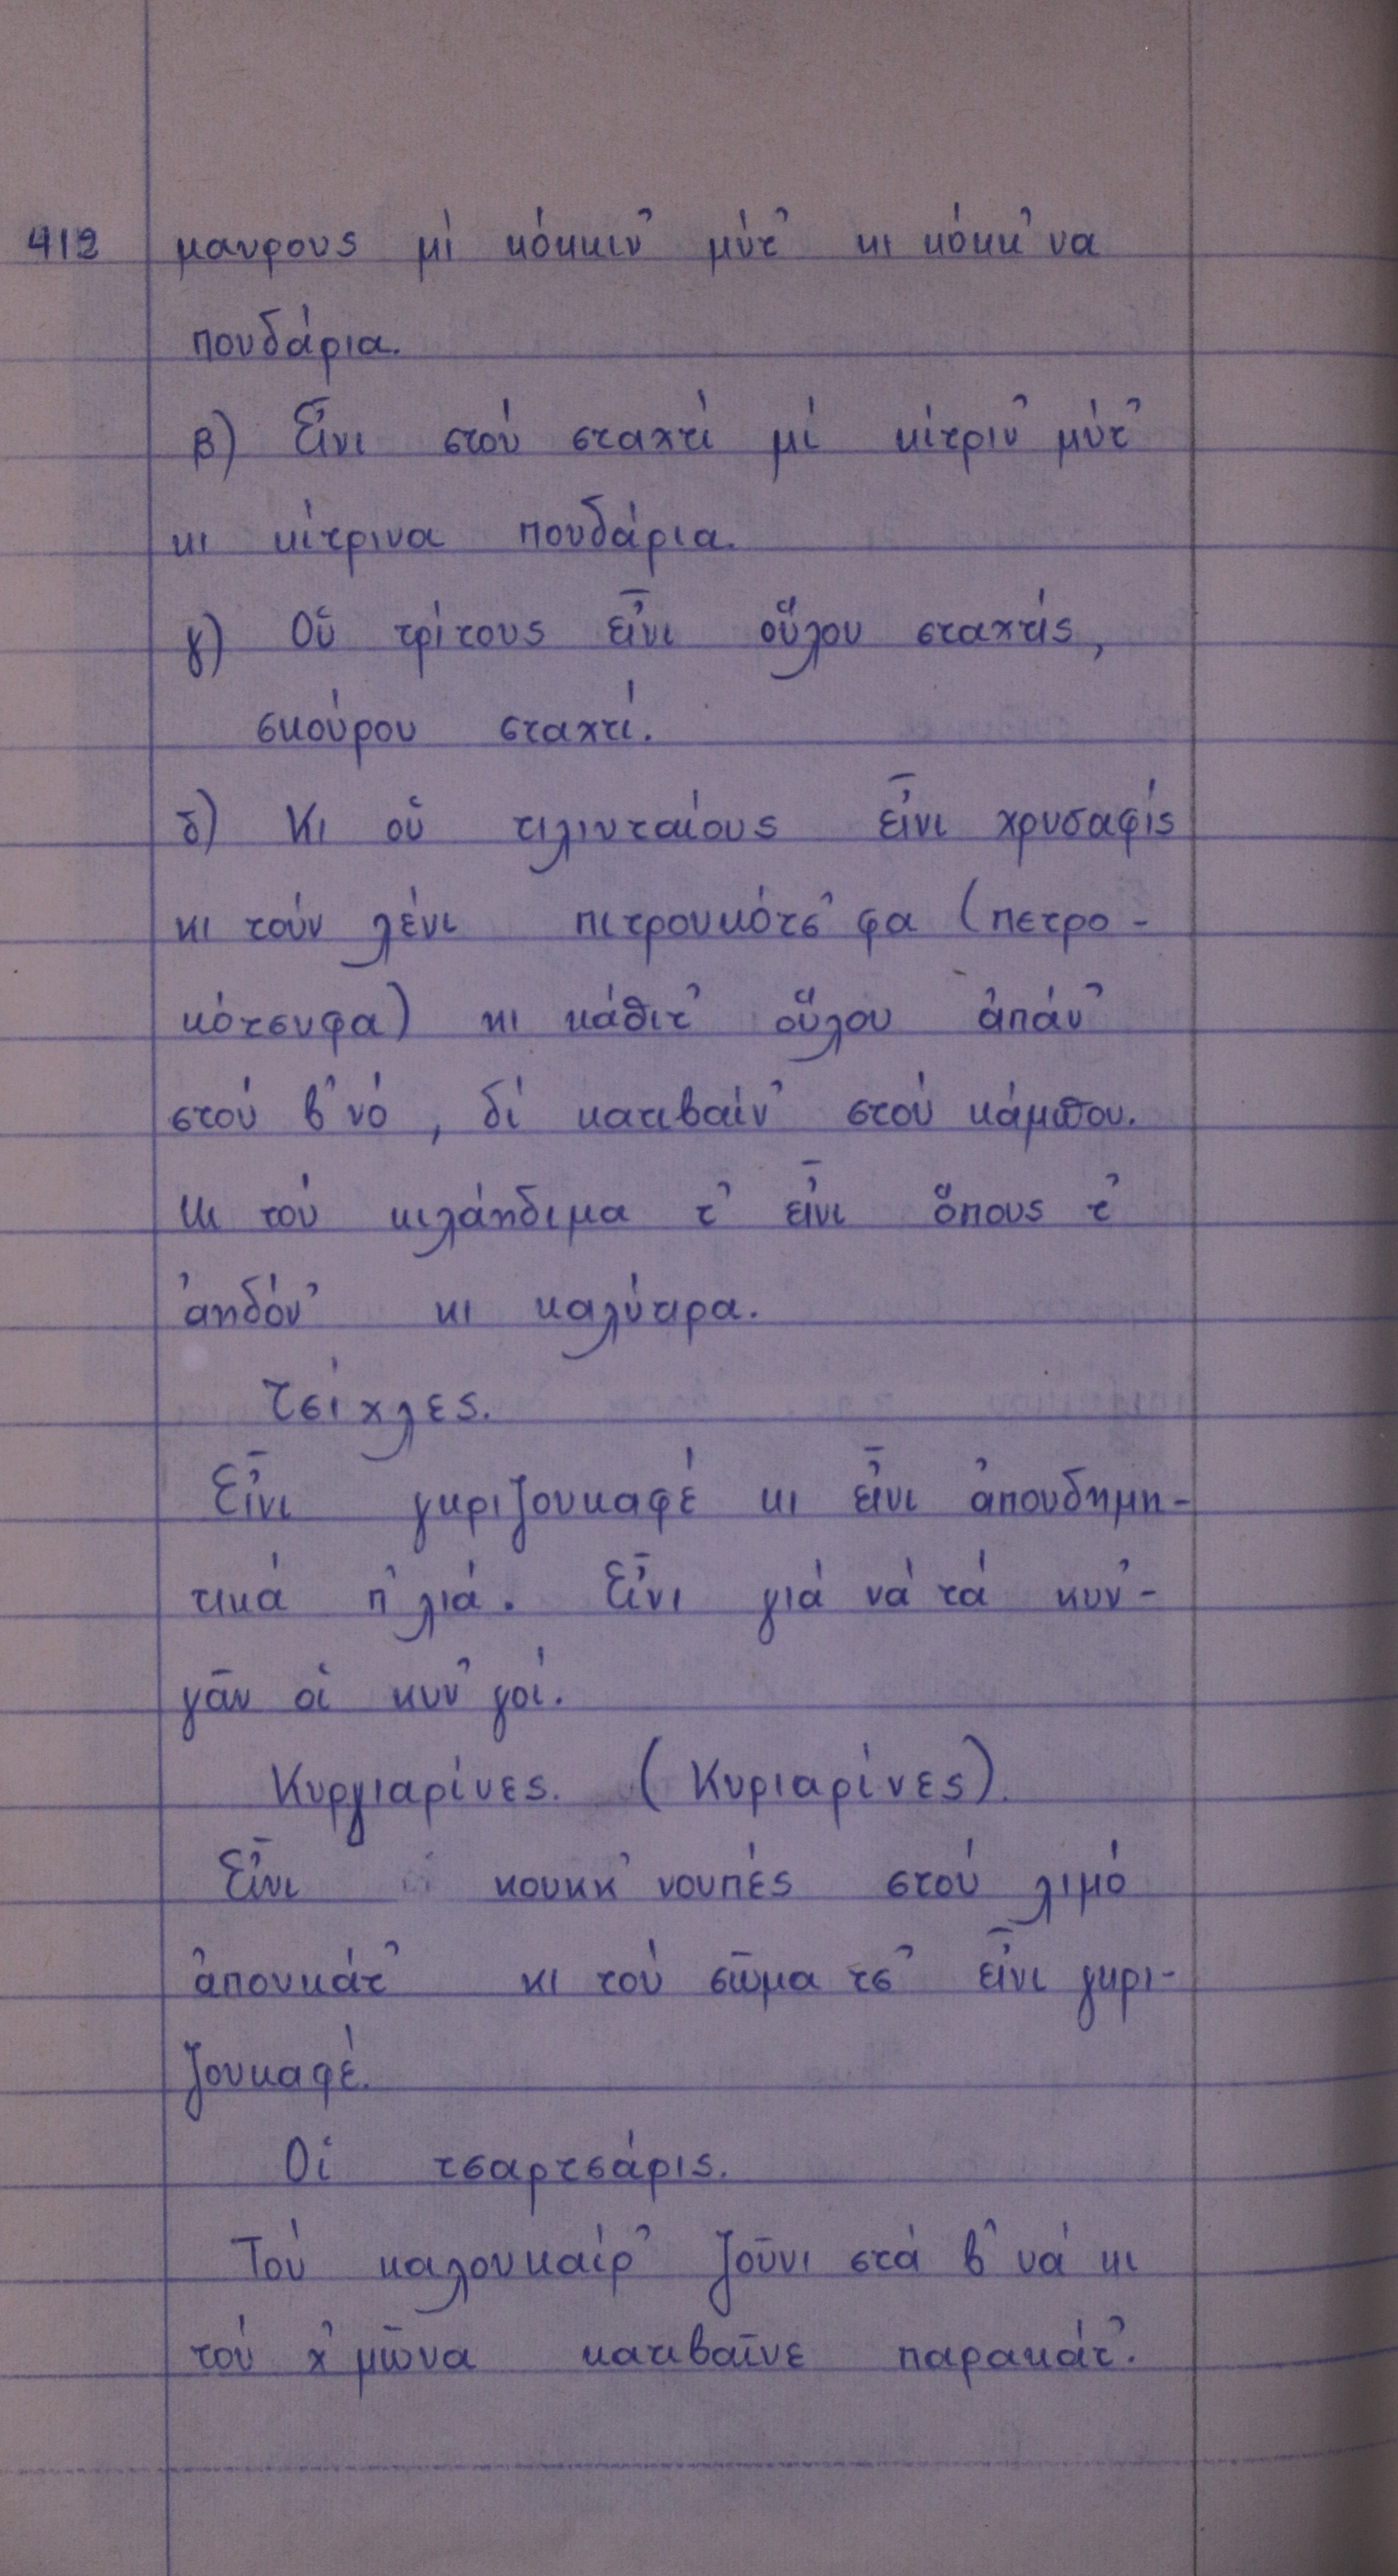 412 μαυρους μί κόκκιν' μύτ' κι κόκκ'να
πουδάρια.
β) Εἶνι στού σταχτί μί κίτριν' μύτ'
κι κίτρινα πουδάρια.
γ) Οὑ τρίτους εἶνι οὕλου σταχτίς,
σκούρου σταχτί.
δ) Κι οὑ τιλιυταίους εἶνι χρυσαφίς
κι τούν λένι πιτρουκότσ'φα (πετρο-
κότσυφα) κι κάθιτ' οὕλου ἀπάν'
στού β'νό, δί κατιβαίν' στού κάμπου.
Κι τού κιλάηδιμα τ' εἶνι ὅπους τ'
ἀηδόν' κι καλύτιρα.
Τσίχλες.
Εἶνι γκριζουκαφέ κι εἶνι ἀπουδημη-
τικά π'λιά. Εἶνι γιά νά τά κυν'-
γᾶν οἱ κυν'γοί.
Κυργιαρίνες. (Κυριαρίνες).
Εἶνι κουκκ'νουπές στού λιμό
ἀπουκάτ' κι τού σῶμα τσ' εἶνι γκρι-
ζουκαφέ.
Οἱ τσαρτσάρις.
Τού καλουκαίρ' ζοῦνι στά β'νά κι
τού χ'μῶνα κατιβαῖνε παρακάτ'.